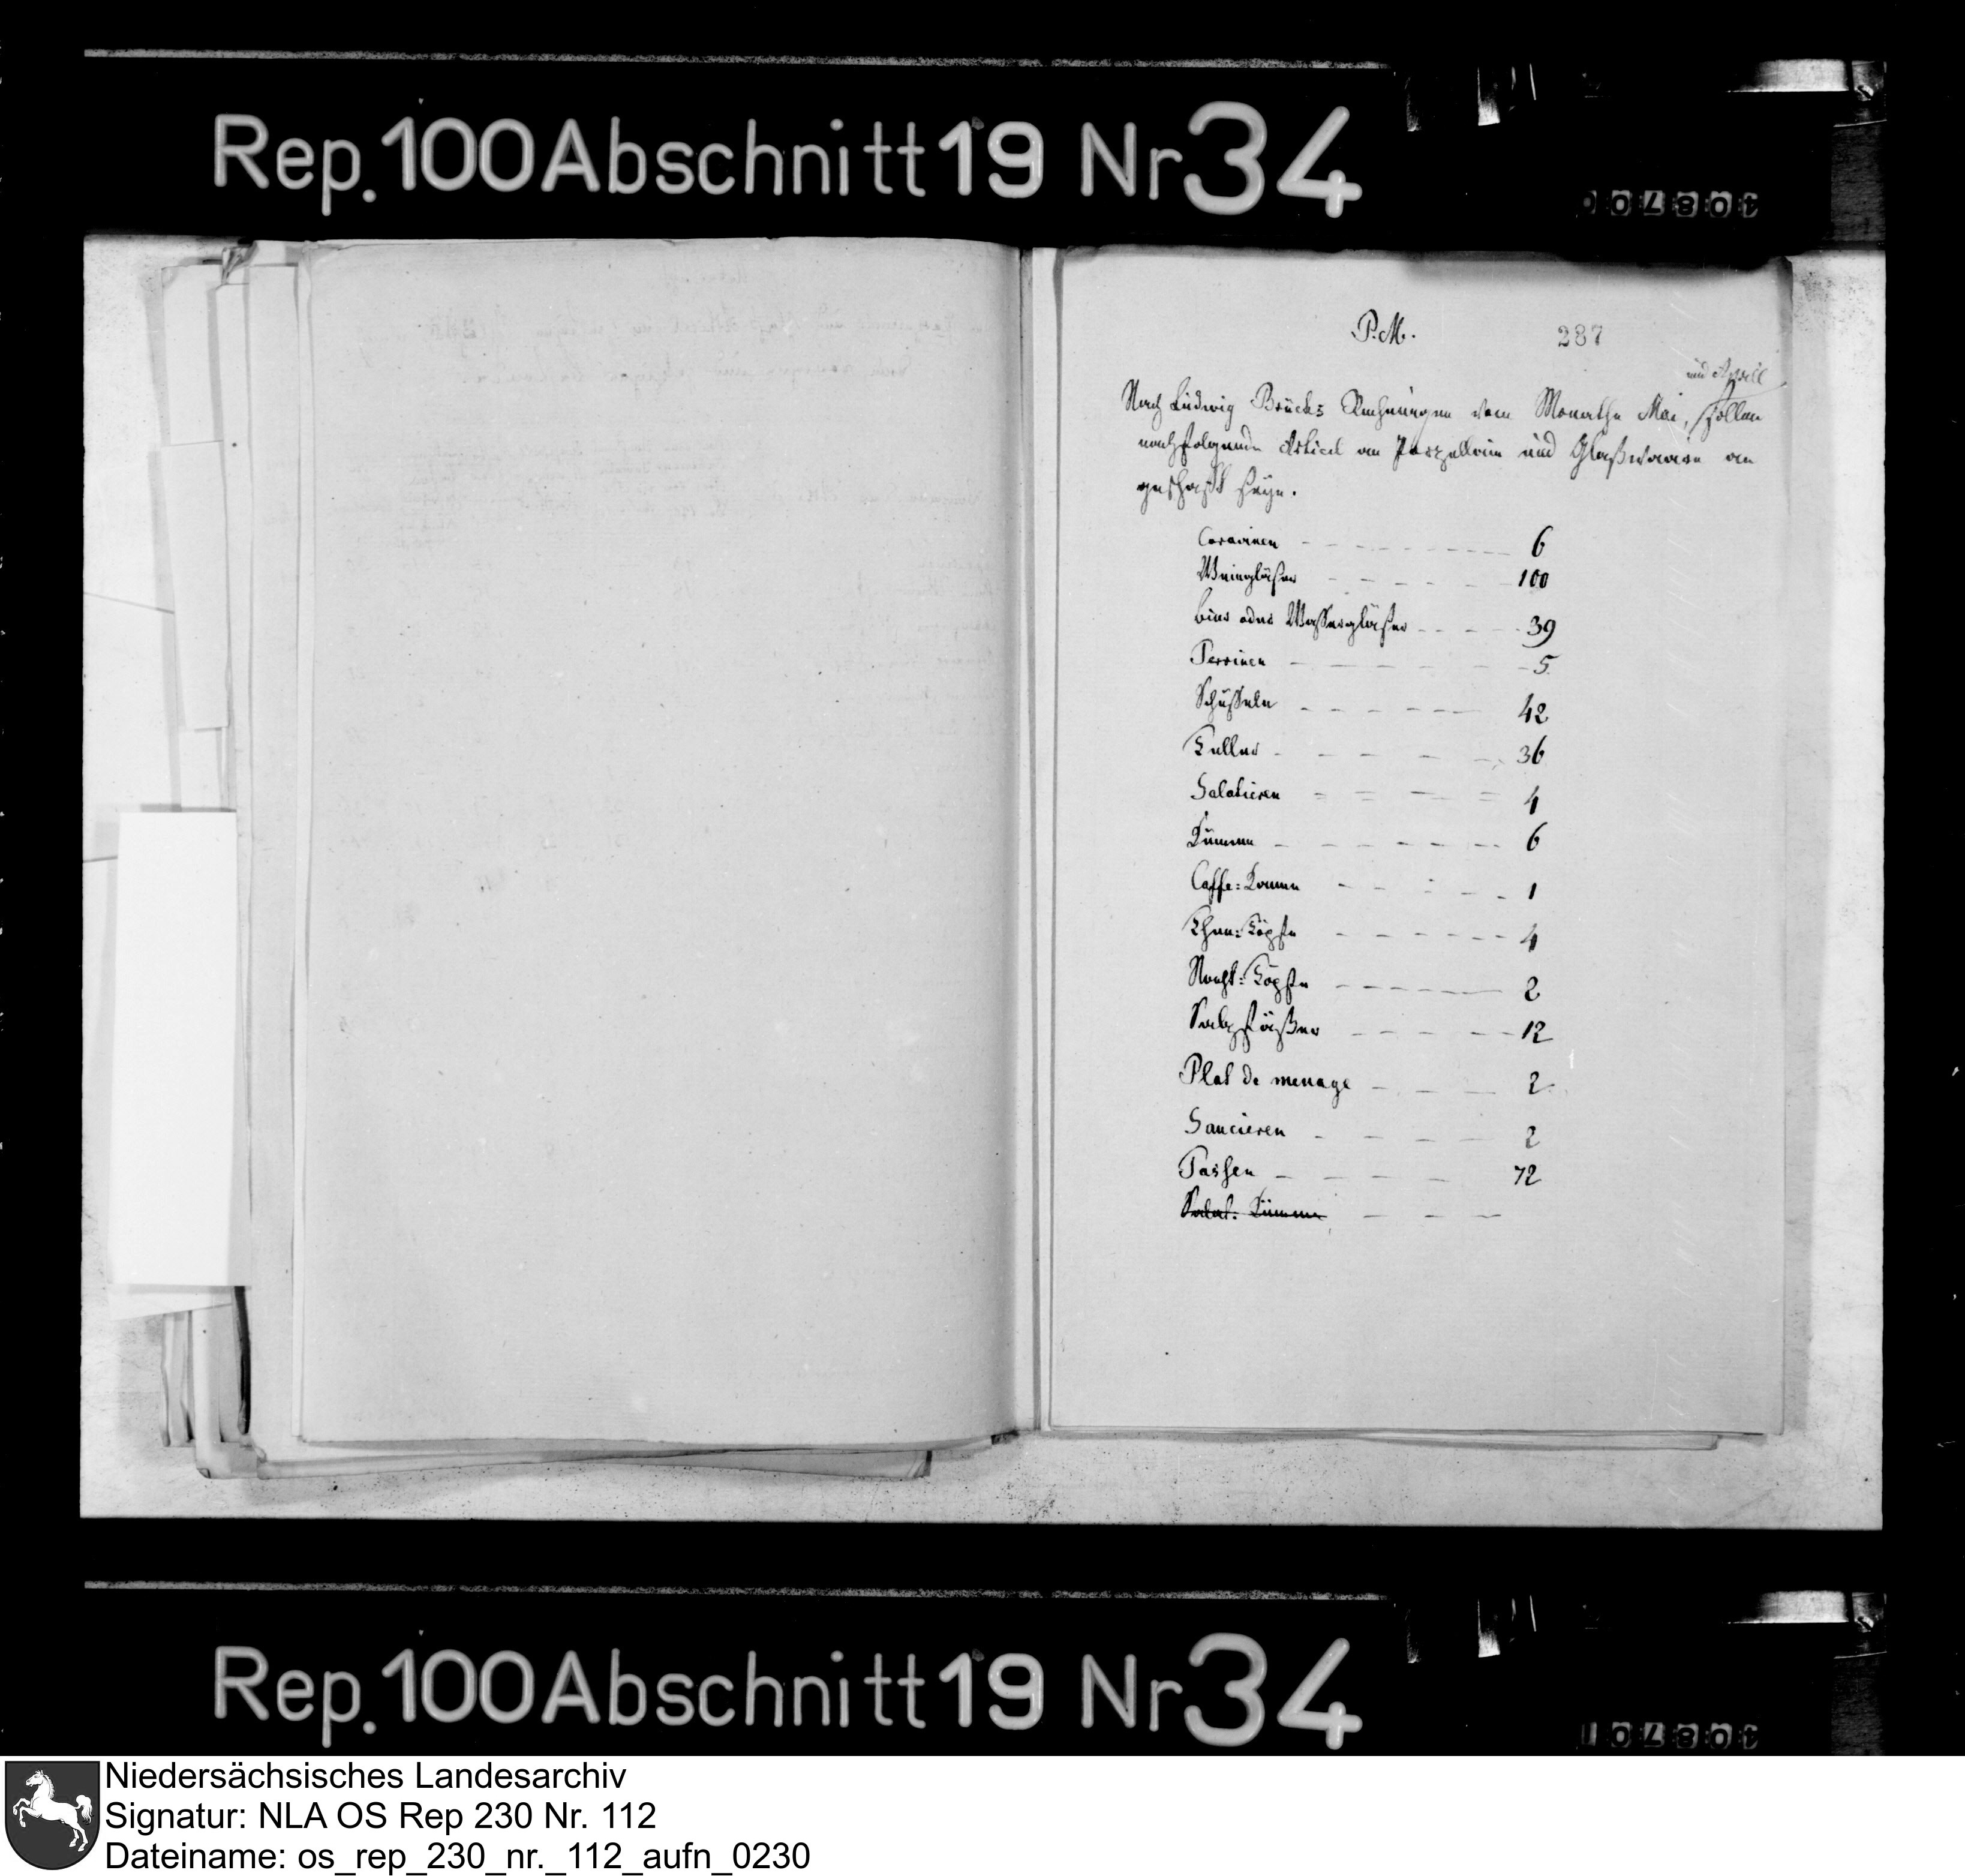 Rep. 100 Abschnitt 19 Nr 34
P. M.
287
und Aprill
Nach Ludwig Brücks Rechnungen vom Monathe Mai, sollen
nachfolgende Articel an Porzellain und Glaßwaare an
geschaft seyn.
Caravinen 6
Weingläser 100
bier oder Wassergläser 39
Terrinen 5
Schüsseln 42
Teller 36
Salatieren 4
Kumme 6
Caffe=Kanne 1
Thee=Töpfe 4
Nacht=Töpfe 2
Salzfäßer 12
Plat de menage 2
Saucieren 2
Tassen 72
Salat= Kumme
Rep. 100 Abschnitt 19 Nr 34
Niedersächsisches Landesarchiv
Signatur: NLA OS Rep 230 Nr. 112
Dateiname: os_rep_230_nr._112_aufn_0230